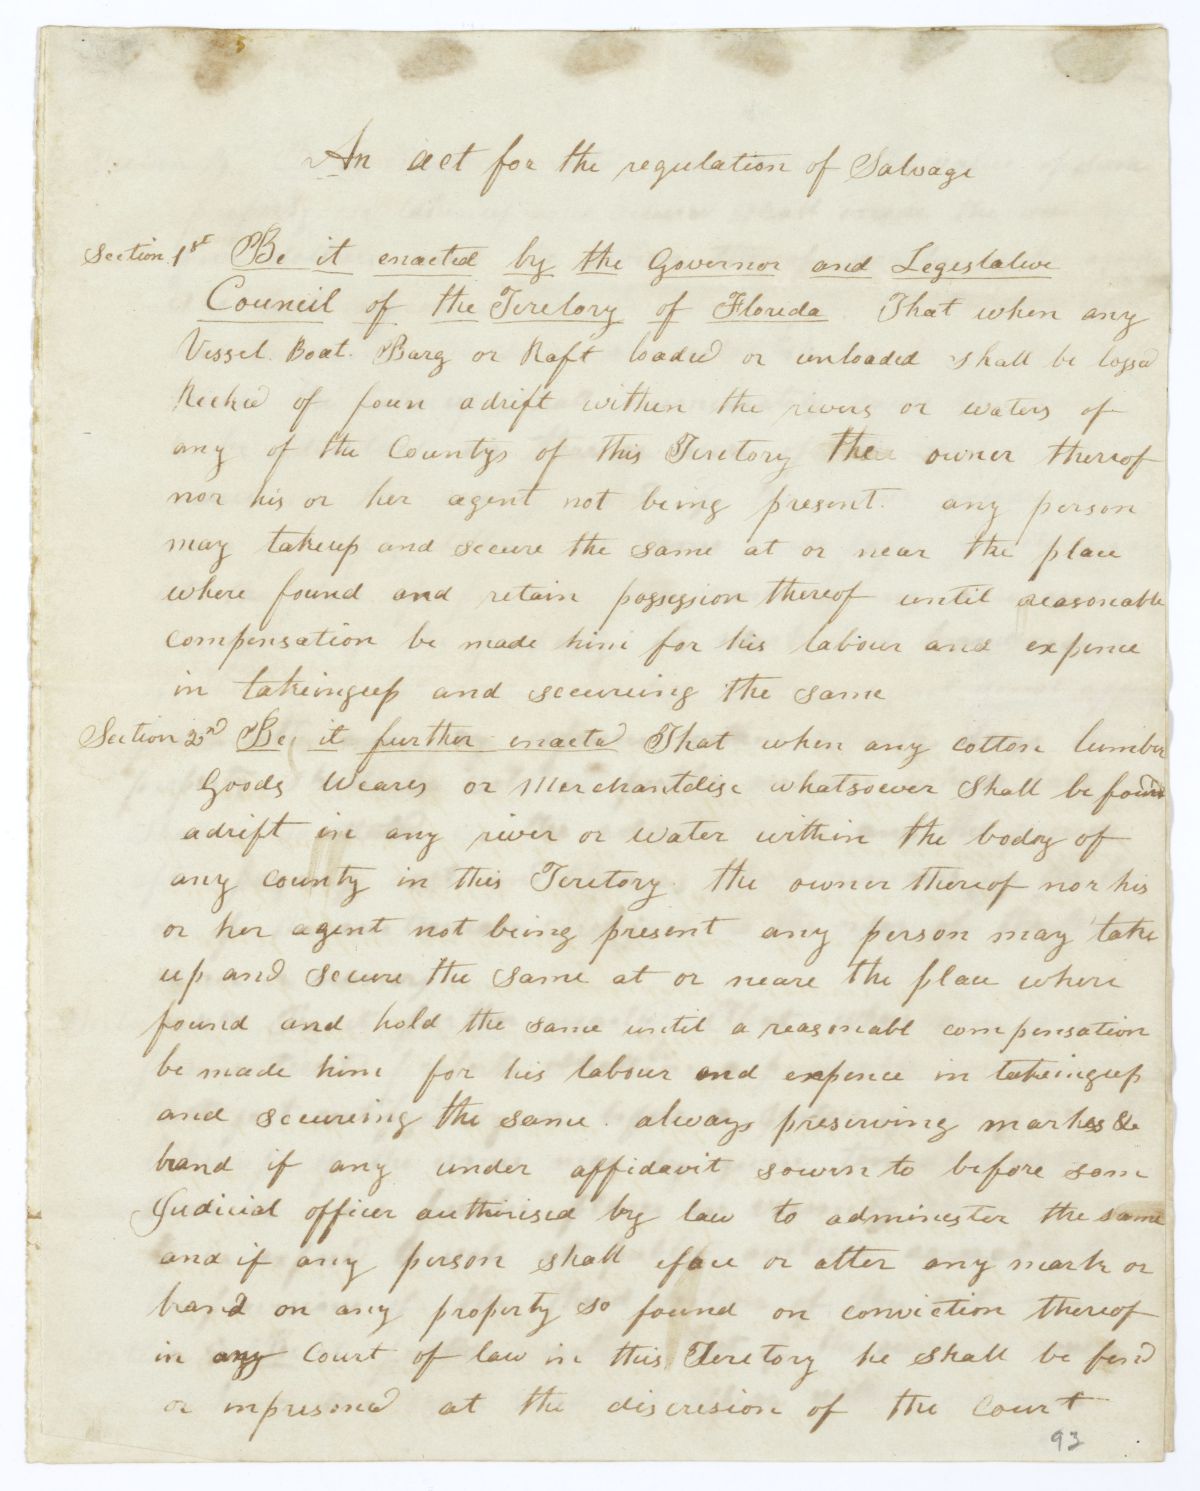 An act for the regulation of Salvage
Section 1st Be it enacted by the Governor and Legeslative
Council of the Teretory of Florida That when any
Vessel. Boat. Barg or Raft loaded or unloaded shall be lossed
Recked of foun adrift within the rivers or waters of
any of the Countys of this Teretory the owner thereof
nor his or her agent not being present. any person
may takeup and secure the same at or near the place
where found and retain possession thereof until reasonable
compensation be made him for his labour and expence
in takeingup and secureing the same
Section 2nd Be it further enacted That when any cotton lumber
Goods Weares or Merchantdise whatsoever Shall be found
adrift in any river or water within the body of
any county in this Teretory. the owner thereof nor his
or her agent not being present any person may take
up and secure the same at or neare the place where
found and hold the same until a reasonabl compensation
be made him for his labour and expence in takeingup
and secureing the same. always preserving markes &
brand if any under affidavit sowrn to before som
Judicial officer authorised by law to adminester the same
and if any person shall eface or alter any mark or
brand on any property so found on conviction thereof
in any Court of law in this Teretory he shall be find
or impresoned at the discresion of the Court
93